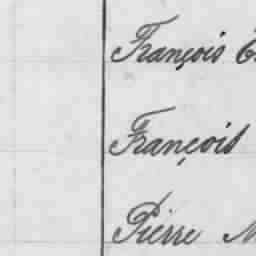 François
François
Pierre M